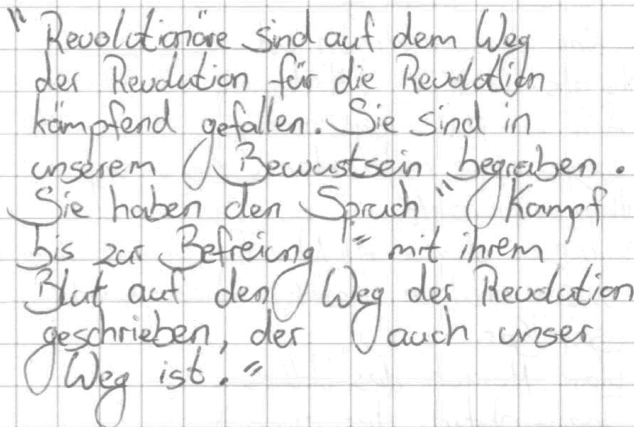 "Revolutionäre sind auf dem Weg
der Revolution für die Revolution
kämpfend gefallen. Sie sind in
unserem Bewustsein begraben.
Sie haben den Spruch "Kampf
bis zur Befreiung" mit ihrem
Blut auf den Weg der Revolution
geschrieben, der auch unser
Weg ist."